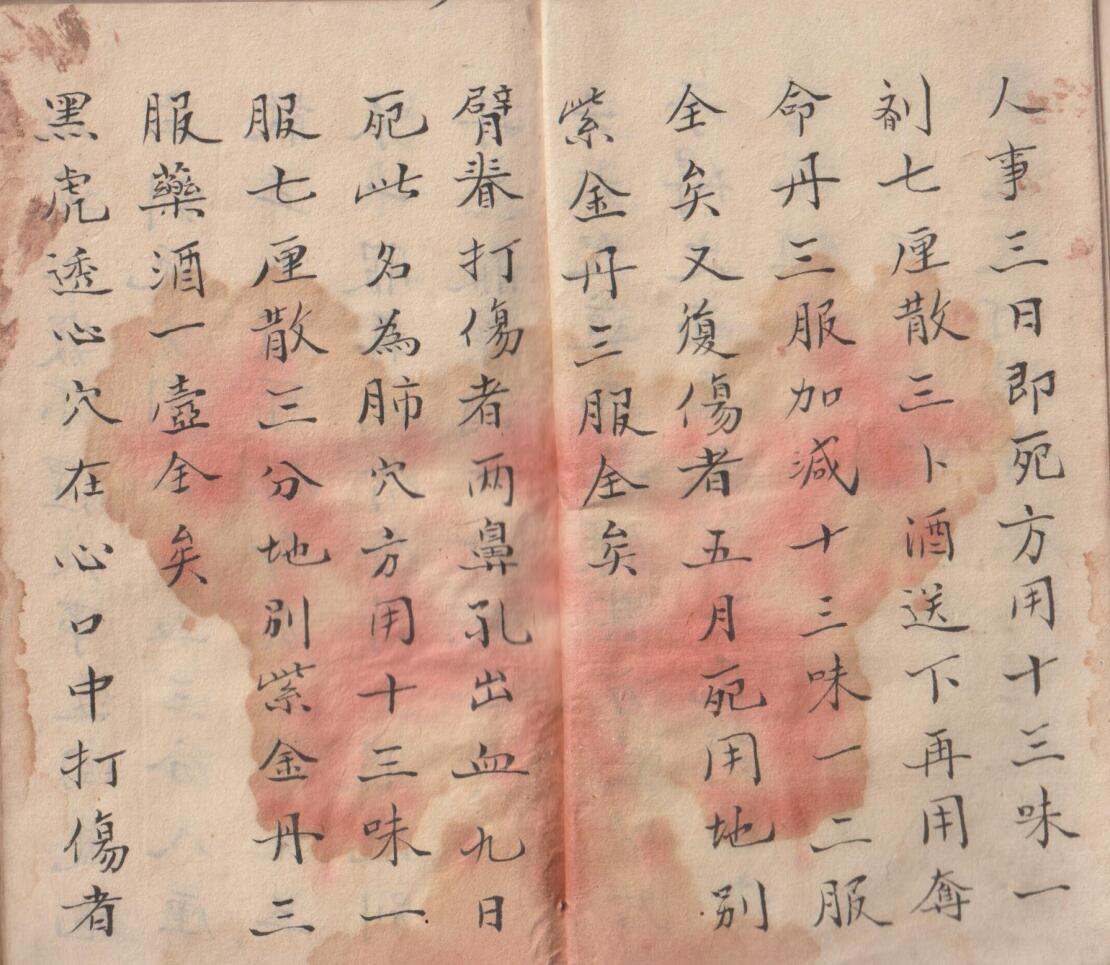 人事三日即死方用十三味一
剂七厘散三卜酒送下再用奪
命丹三服加减十三味一二服
全矣又復傷者五月死用地别
紫金丹三服全矣
臂脊打傷者两鼻孔出血九日
死此名為肺穴方用十三味一
服七厘散三分地别紫金丹三
服藥酒一壼全矣
黑虎透心穴在心口中打傷者